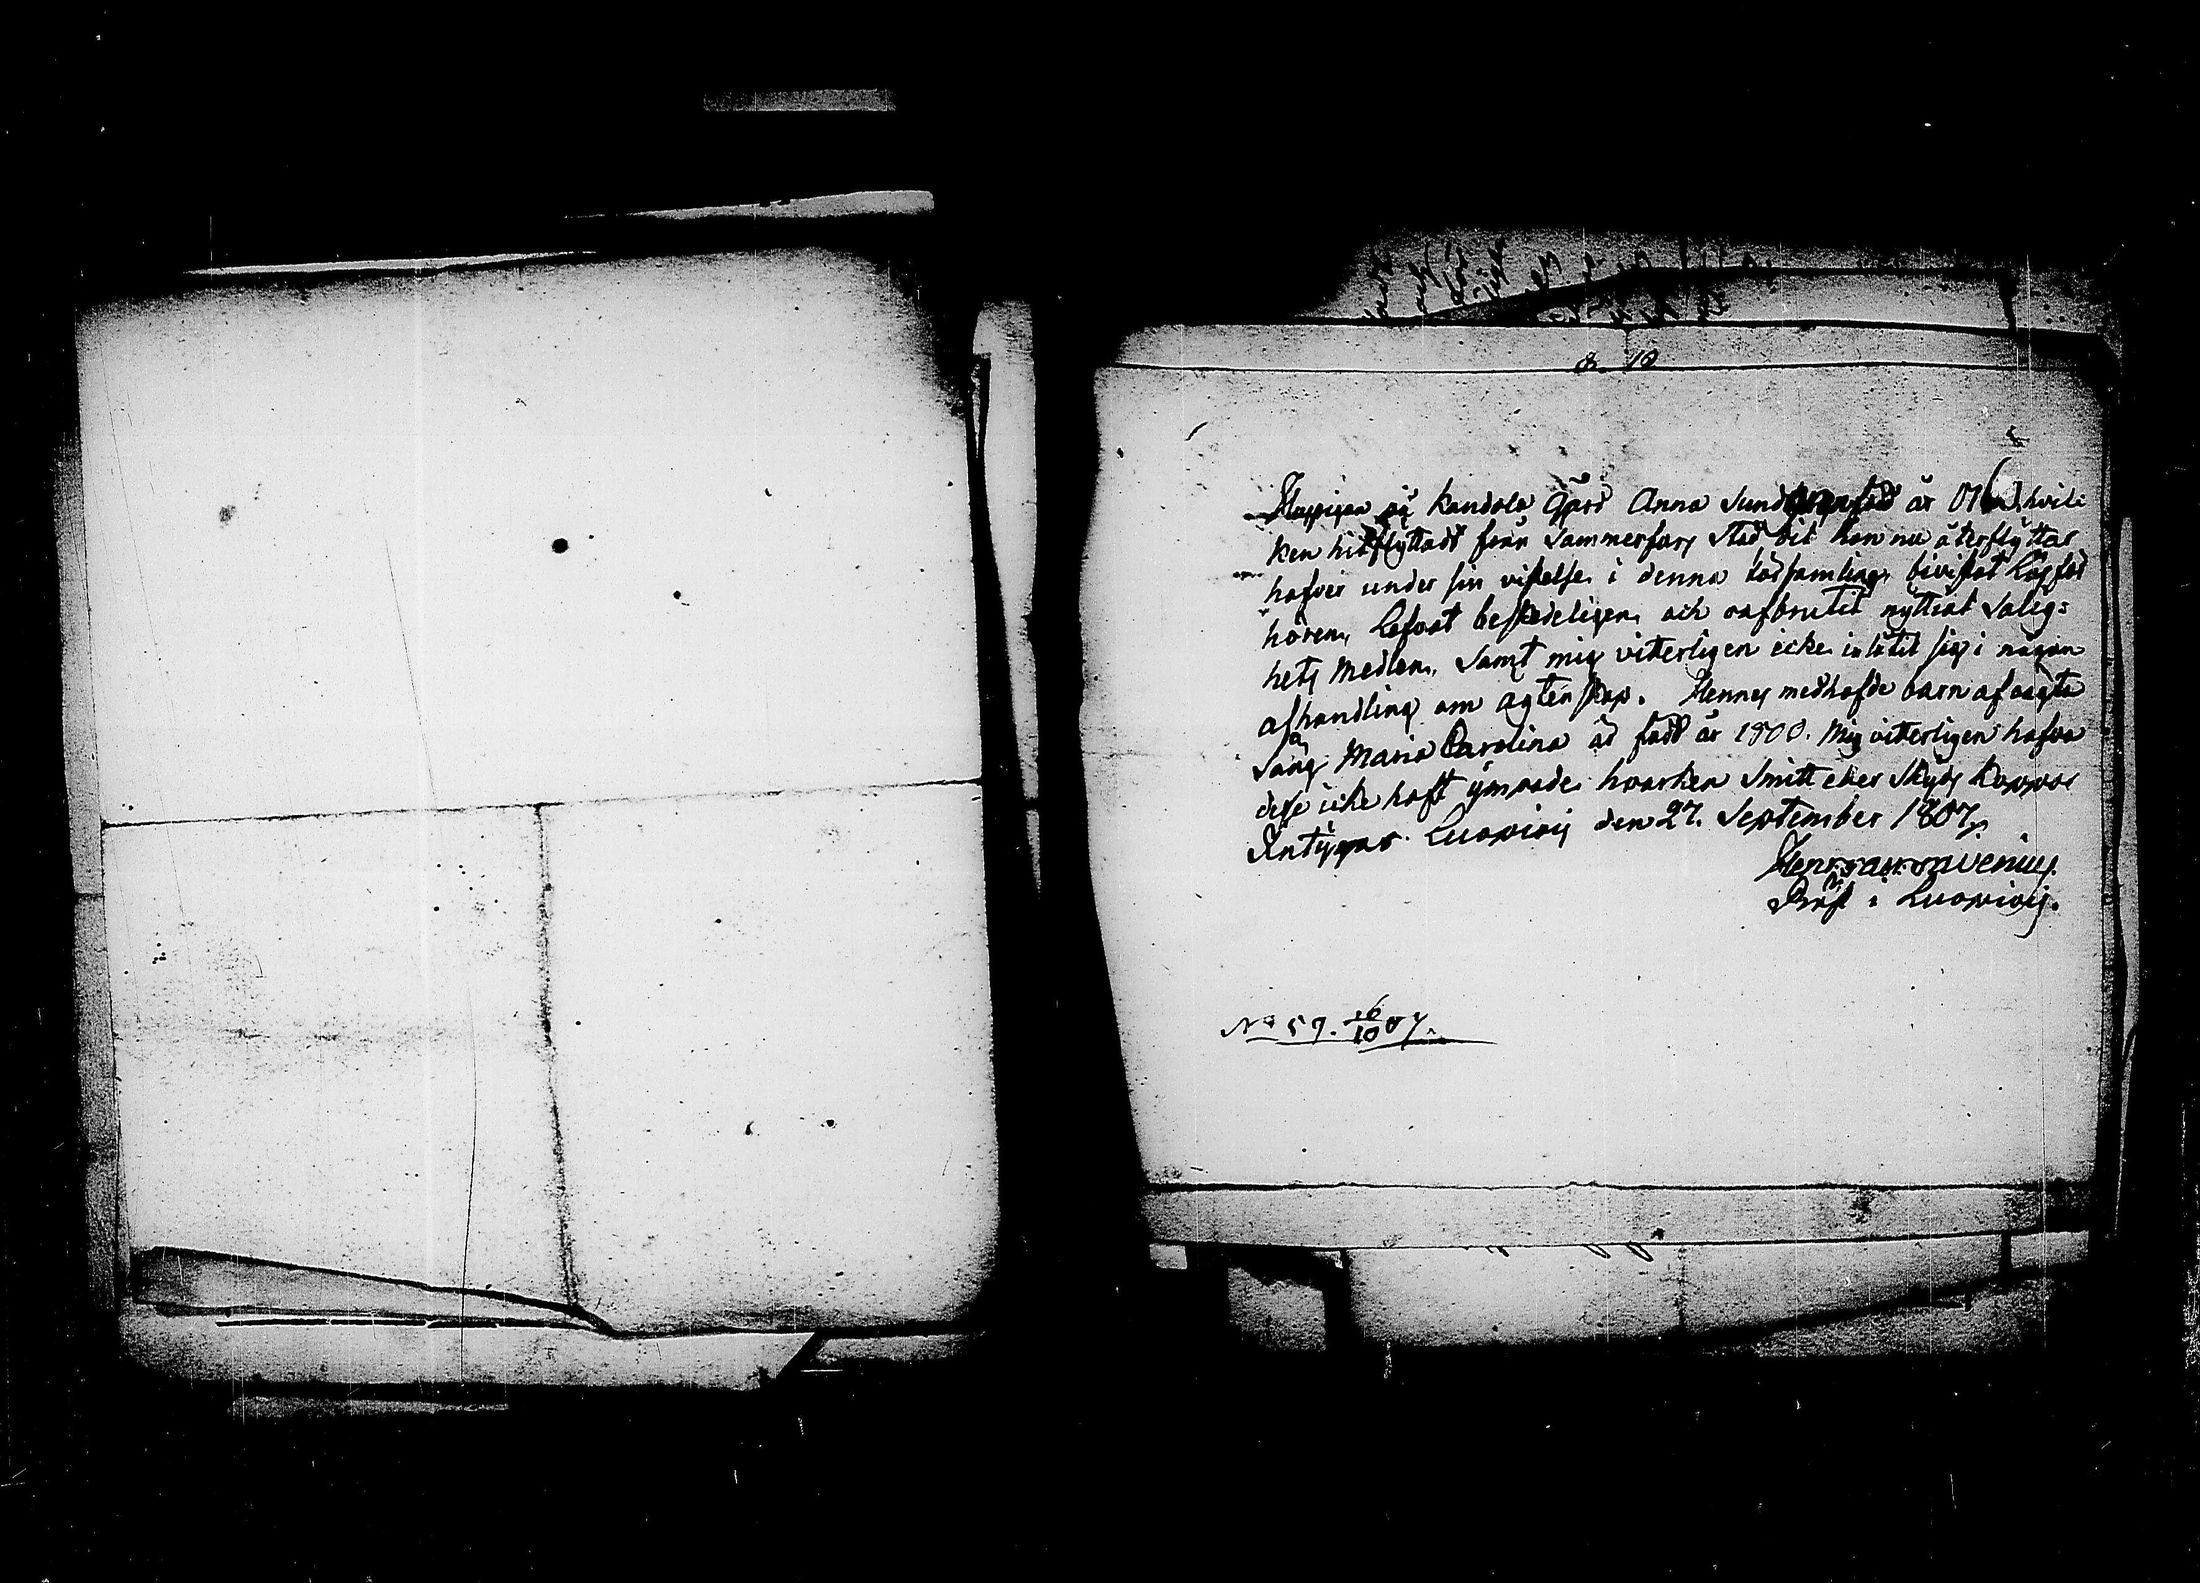 Huspigan på Kandola Gård Anna Sund född år hvil:
ken hitflyttadt från Tammerfors Stad dit hon nu återflyttar
hafver under sin vistelse i denna församling, bivistat Läsför
hören, Lefvat beskedeligen och oafbrutit nyttiat Salig:
hets Medlen, Samt mig vitterligen icke inlåtit sig i någon
afhandling om ägtenskap. Hennes medhafde barn af oägta
Säng Maria Carolina är född år 1800. Mig vitterligen hafva
desse icke haft ympade hvarken Smitt eller Skyds Koppor
Intygar. Luopiois den 27. September 1807.
Pråst i Luopiois.
No 59. 16/10 07.